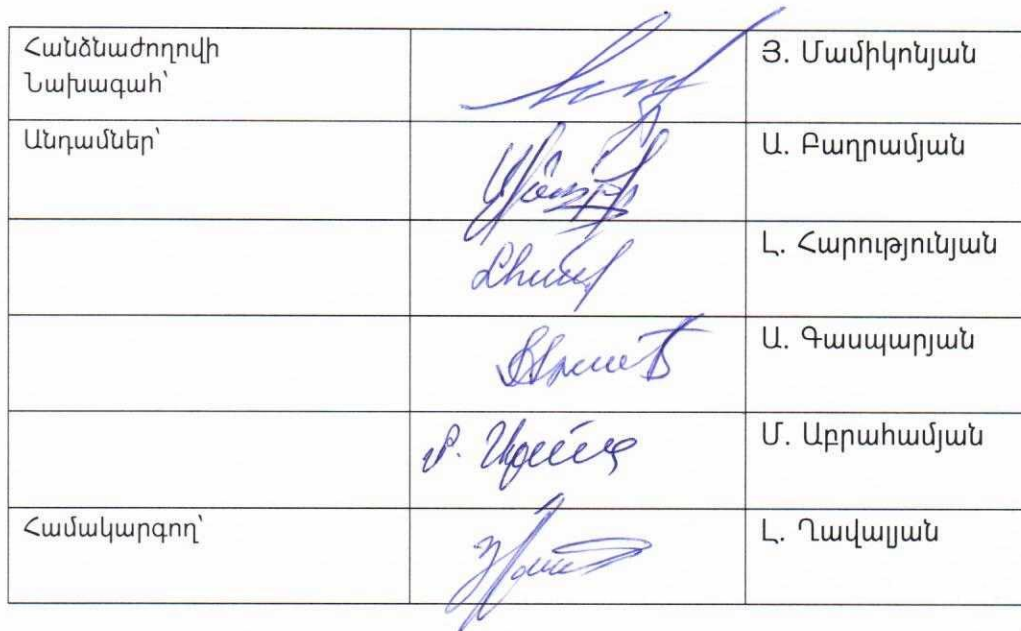 Հանձնաժողովի
Նախագահ՝
Յ. Մամիկոնյան
Անդամներ՝
Ա. Բաղրամյան
Լ. Հարությունյան
Ա. Գասպարյան
Մ. Աբրահամյան
Համակարգող՝
Լ. Ղավալյան